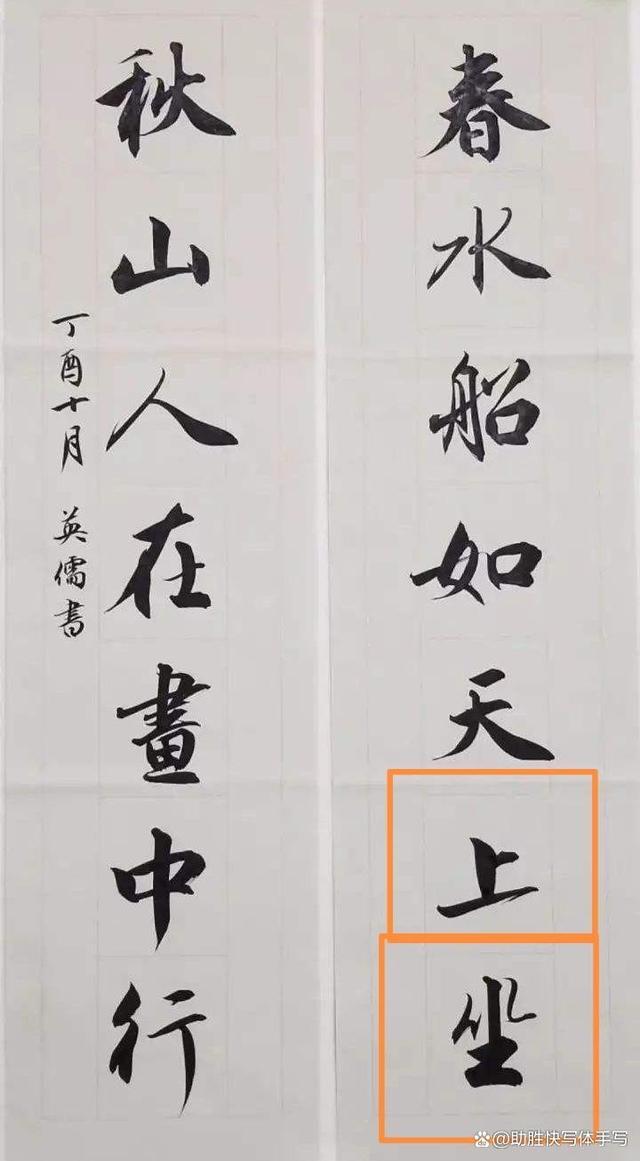 春水船如天上坐
秋山人在畫中行
丁酉十月 英儒書
@助胜快写体手写